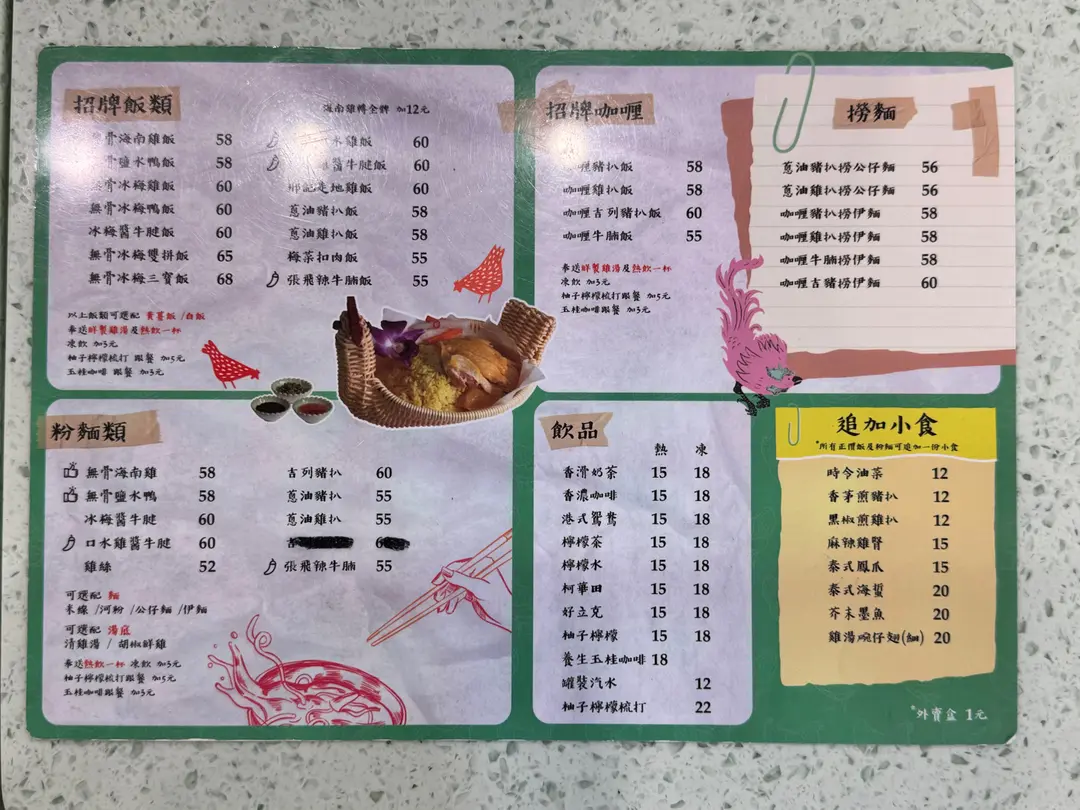 招牌飯類
海南雞轉全髀 加12元
骨海南雞飯 58
骨鹽水鴨飯 58
無骨冰梅雞飯 60
無骨冰梅鴨飯 60
冰梅醬牛腱飯 60
無骨冰梅雙拼飯 65
無骨冰梅三寶飯 68
水雞飯 60
醬牛腱飯 60
走地雞飯 60
蔥油豬扒飯 58
蔥油雞扒飯 58
梅菜扣肉飯 55
張飛辣牛腩飯 55
以上飯類可選配 黃薑飯 /白飯
奉送鮮製雞湯及熱飲一杯
凍飲 加3元
柚子檸檬梳打 跟餐 加5元
玉桂咖啡 跟餐 加3元
招牌咖喱
喱豬扒飯 58
咖喱雞扒飯 58
咖喱吉列豬扒飯 60
咖喱牛腩飯 55
奉送鮮製雞湯及熱飲一杯
凍飲 加3元
柚子檸檬梳打跟餐 加5元
玉桂咖啡跟餐 加3元
撈麵
蔥油豬扒撈公仔麵 56
蔥油雞扒撈公仔麵 56
咖喱豬扒撈伊麵 58
咖喱雞扒撈伊麵 58
咖喱牛腩撈伊麵 58
咖喱吉豬撈伊麵 60
粉麵類
無骨海南雞 58
無骨鹽水鴨 58
冰梅醬牛腱 60
口水雞醬牛腱 60
雞絲 52
吉列豬扒 60
蔥油豬扒 55
蔥油雞扒 55
張飛辣牛腩 55
可選配 麵
米線 /河粉 /公仔麵 /伊麵
可選配 湯底
清雞湯 / 胡椒鮮雞
奉送熱飲一杯 凍飲 加3元
柚子檸檬梳打跟餐 加5元
玉桂咖啡跟餐 加3元
飲品
熱 凍
香滑奶茶 15 18
香濃咖啡 15 18
港式鴛鴦 15 18
檸檬茶 15 18
檸檬水 15 18
柯華田 15 18
好立克 15 18
柚子檸檬 15 18
養生玉桂咖啡 18
罐裝汽水 12
柚子檸檬梳打 22
追加小食
*所有正價飯及粉麵可追加一份小食
時令油菜 12
香茅煎豬扒 12
黑椒煎雞扒 12
麻辣雞腎 15
泰式鳳爪 15
泰式海蜇 20
芥末墨魚 20
雞湯碗仔翅(細) 20
*外賣盒 1元